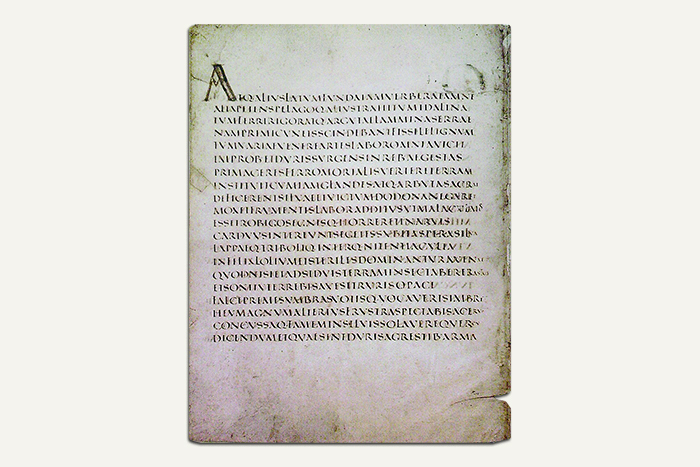 ATQ·ALIUSLATUMFUNDAIAMVERBERATAMNE
ALTAPETENSPELAGOQ·ALIUSTRAHITUMIDALINA
TUMFERRIRIGORATQ·ARGUTAELAMMINASERRAE
NAMPRIMICUNEISSCINDEBANTFISSILELIGNUM
TUMVARIAEVENEREARTESLABOROMNIAVICIT
IMPROBETDURISURGENSINREBUSEGESTAS
PRIMACERESFERROMORTALISVERTERETERRAM
INSTITUITCUMIAMGLANDESATQ·ARBUTASACRAE
DEFICERENTSILVAEETVICTUMDODONANEGARET
MOXETFRUMENTISLABORADDITUSUTMALACULMOS
ESSETROBIGOSEGNISQ·HORRERETINARVIS
CARDUUSINTEREUNTSEGETESSUBITASPERASILVA
LAPPAEQ·TRIBOLIQ·INTERQ·NITENTIACULTA
INFELIXLOLIUMETSTERILESDOMINANTURAVENAE
QUODNISIETADSIDUISTERRAMINSECTABERERASTRIS
ETSONITUTERREBISAVESETRURISOPACI
FALCEPREMESUMBRASVOTISQ·VOCAVERISIMBRE
HEUMAGNUMALTERIUSFRUSTRASPECTABISACERVUM
CONCUSSAQ·FAMEMINSILVISSOLAVEREQUERCU
DICENDUMETQUAESINTDURISAGRESTIBUARMA